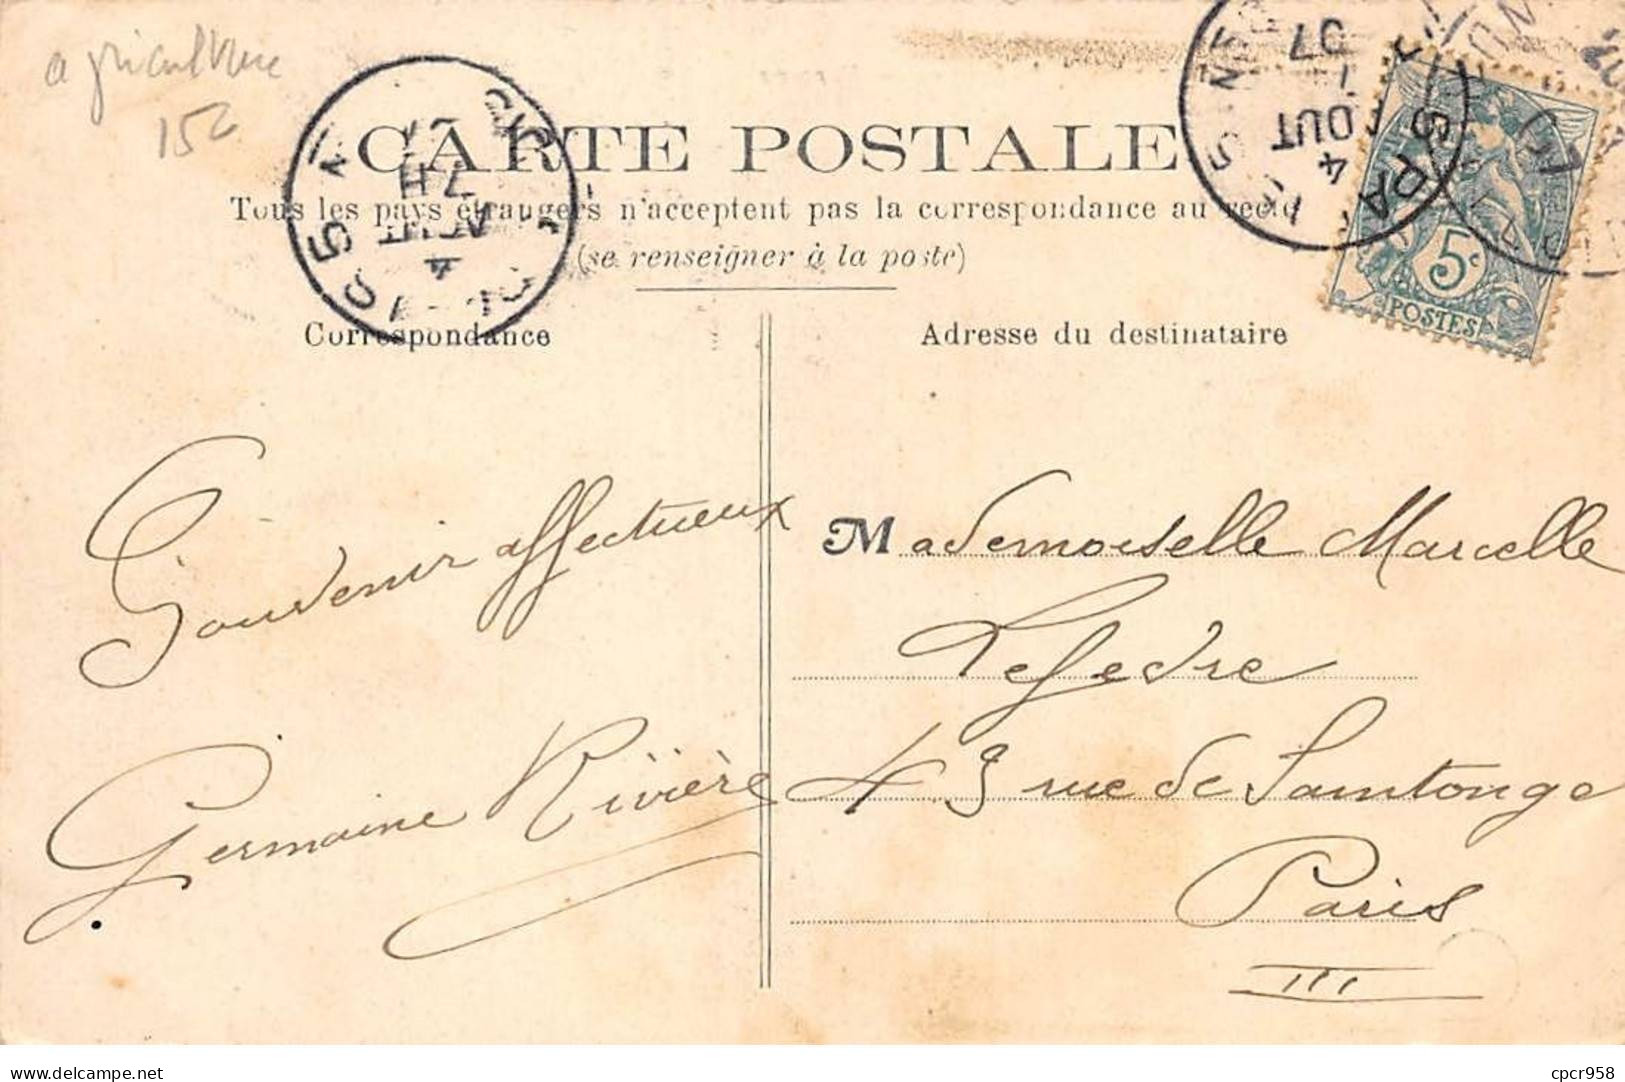 agriculture
152
CARTE POSTALE
Tous les pays étrangers n'acceptent pas la correspondance au recto
(se renseigner à la poste)
Correspondance
Adresse du destinataire
4
AOUT
07
PARIS
7 H
AOUT
4
5c
POSTES
Souvenir affectueux
Germaine Rivière
Mademoiselle Marcelle
Lefevre
43 rue de Saintonge
Paris
III
www.delcampe.net
cpcr958